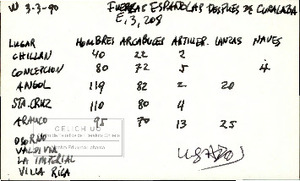 W 3-3-90
FUERZAS ESPAÑOLAS DESPUES DE CURALABA
E, 3, 208
LUGAR HOMBRES ARCABUCES ARTILLER. LANZAS NAVES
CHILLAN 40 22 2
CONCEPCION 80 72 5 4
ANGOL 119 82 2 20
STA. CRUZ 110 80 4
ARAUCO 95 70 13 25
OSORNO
VALDIVIA
LA IMPERIAL
VILLA RICA